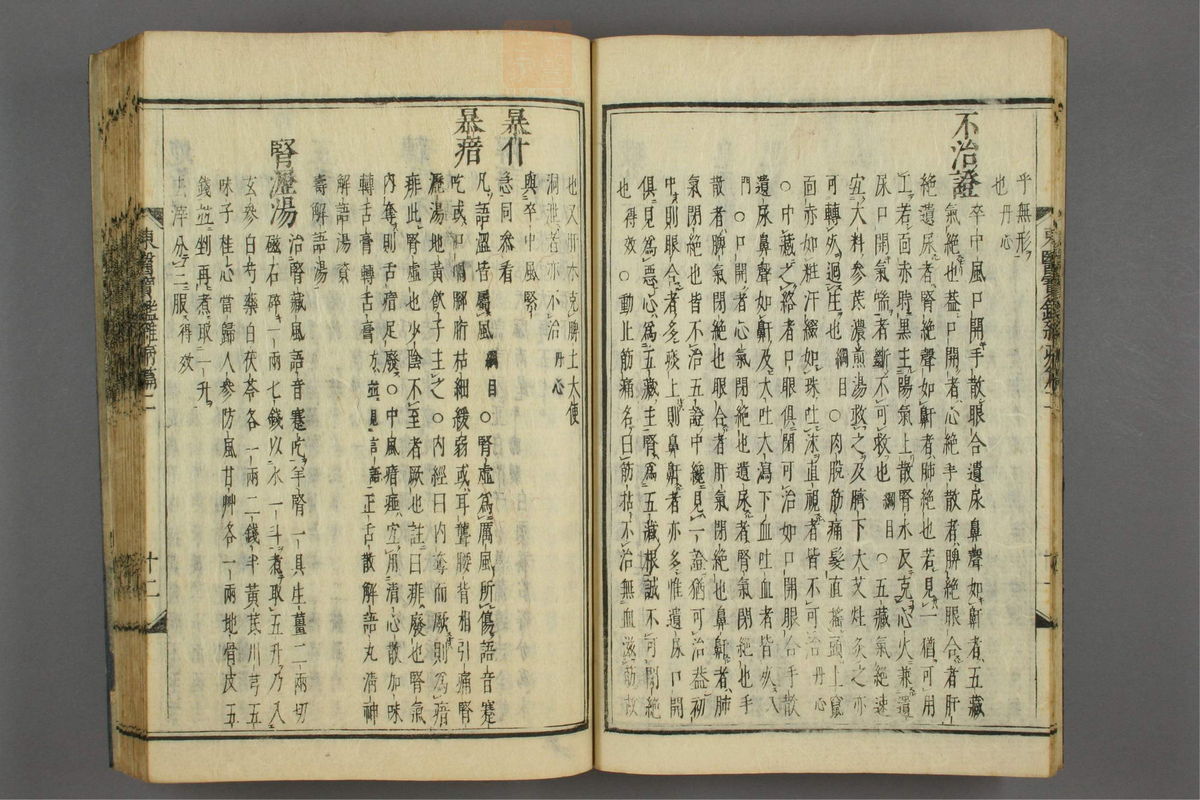 乎無形
也丹心
不治證
卒中風口開手散眼合遺尿鼻聲如鼾者五藏
氣絶也蓋口開者心絶手散者脾絶眼合者肝
絶遺尿者腎絶聲如鼾者肺絶也若見一猶可用
工若面赤時黒主陽氣上散腎水反克心火兼遺
尿口開氣喘者斷不可救也 綱目○五藏氣絶速
宜大料參芪濃煎湯救之及臍下大艾灶灸之亦
可轉死廻生也 綱目○肉脫筋痛髮直搖頭上竄
面赤如粧汗綴如珠吐沫直視者皆不可治 丹心
○中藏之絡者口眼俱閉可治如口開眼合手散
遺尿鼻聲如鼾及大吐大瀉下血吐血者皆死 入
門○口開者心氣閉絶也遺尿者腎氣閉絶也手
散者脾氣閉絶也眼合者肝氣閉絶也鼻鼾者肺
氣閉絶也皆不治五證中纔見一證猶可治盖初
中則眼合者多痰上則鼻鼾者亦多惟遺尿口開
俱見爲惡心爲五藏主腎爲五藏根誠不可閉絶
也 得效○動止筋痛名曰筋枯不治無血滋筋故
也又肝木克脾土大便
洞泄苦亦不治 丹心
暴仆
與卒中風竪
急同參看
暴瘖
凡語澁皆屬風 綱目○腎虛爲厲風所傷語音蹇
吃或口喎脚胻枯細緩弱或耳聾腰背相引痛腎
瀝湯地黃飮子主之○內經曰內奪而厥則爲瘖
痱此腎虛也少陰不至者厥也註曰痱廢也腎氣
內奪則舌瘖足廢○中風瘖瘂宜用淸心散加味
轉舌膏轉舌膏 方並見言語 正舌散解語丸淸神
解語湯資
壽解語湯
腎瀝湯
治腎藏風語音蹇吃羊腎一具生薑二兩切
磁石碎一兩七錢以水一斗煮取五升乃入
玄參白芍藥白茯苓各一兩二錢半黃芪川芎五
味子桂心當歸人參防風甘艸各一兩地骨皮五
錢並剉再煮取一升
去滓分二服 得效
東醫寶鑑雜病篇二
十二